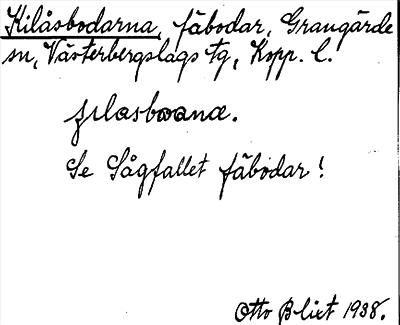 Kilåsbodarna, fäbodar, Grangärde
sn, Västerbergslags tg, Kopp. l.
Se Sågfallet fäbodar!
Otto Blixt 1938.